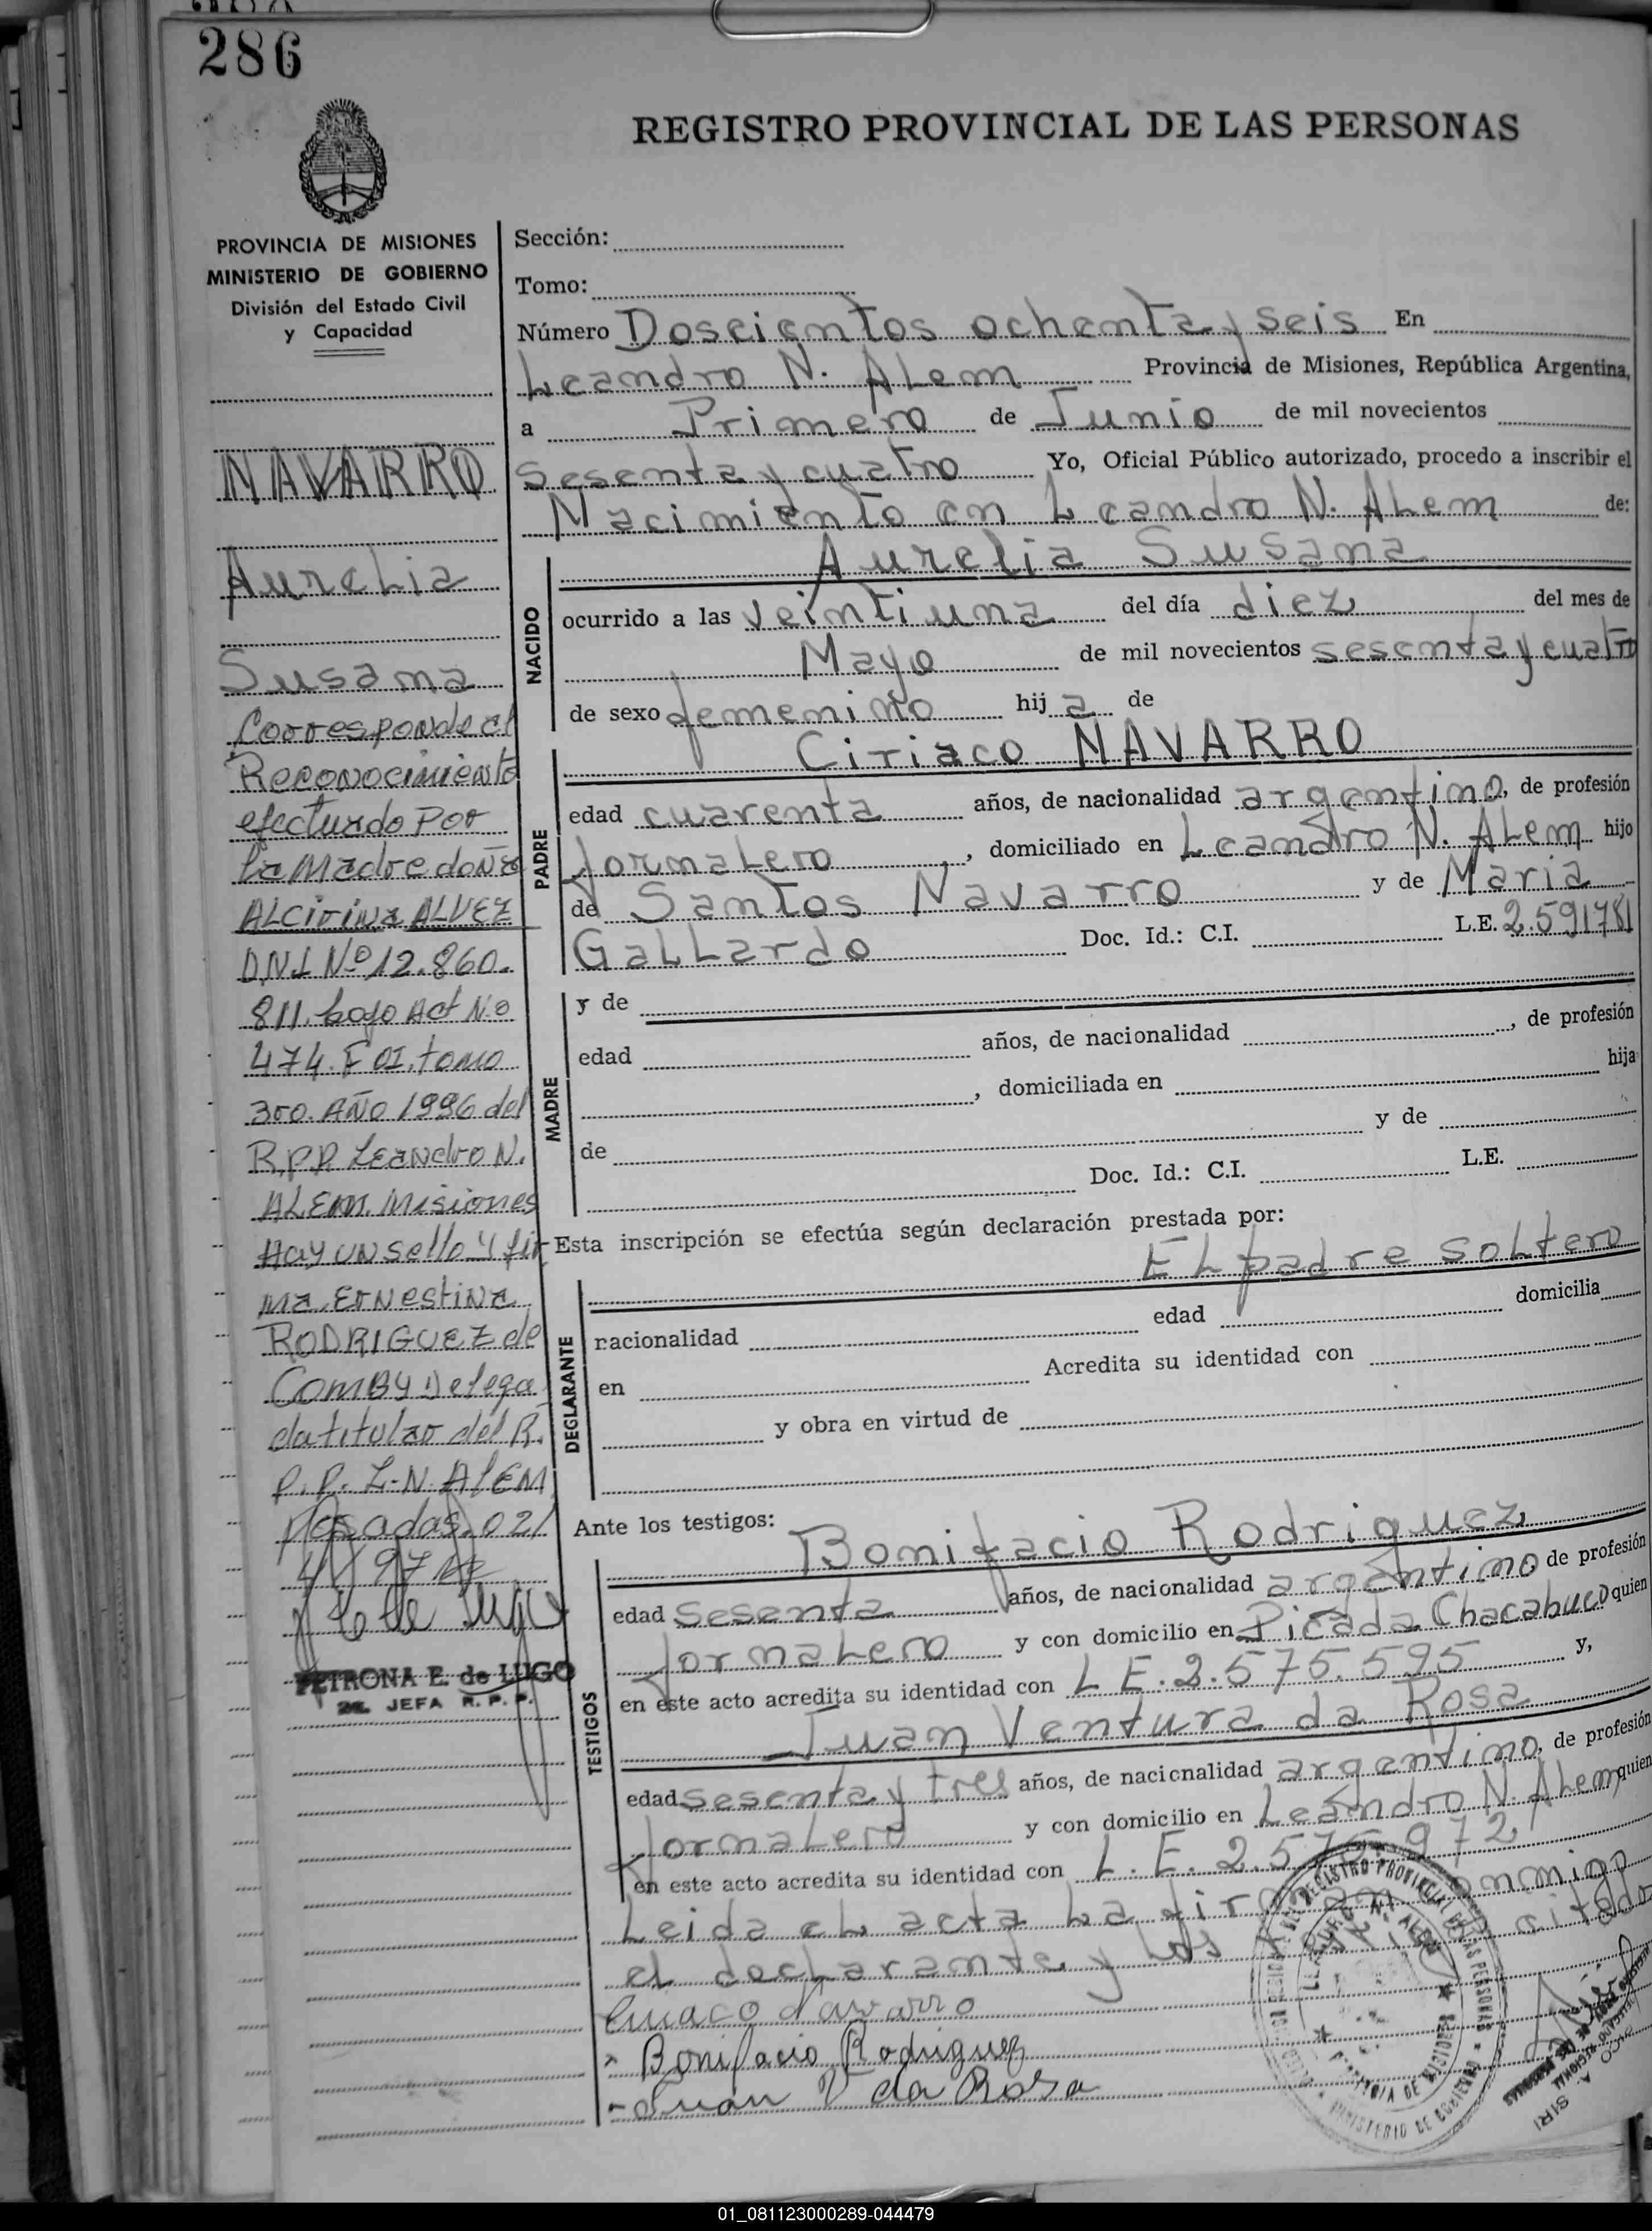 286
REGISTRO PROVINCIAL DE LAS PERSONAS
PROVINCIA DE MISIONES
MINISTERIO DE GOBIERNO
División del Estado Civil
y Capacidad
NAVARRO
Aurelia
Susana
Corresponde al
Reconocimiento
efectuado Por
La Madre doña
ALCirina ALVEZ
D.N.I Nº 12.860.
811. bajo Act Nº
474. F 01. tomo
3º0. AÑO 1996 del
R.P.P. LEandro N.
ALEM. Misiones
Hay un sello y fir-
ma. Ernestina
RODRIGUEZ de
COMBY Delega
da titular del R.
P.P. L.N. ALEM
Posadas. 02/
4/97
PETRONA E. de LUGO
JEFA R. P. P.
Sección:
Tomo:
Número Doscientos ochenta y seis En
Leandro N. ALem Provincia de Misiones, República Argentina,
a Primero de Junio de mil novecientos
sesenta y cuatro Yo, Oficial Público autorizado, procedo a inscribir el
Nacimiento en Leandro N. ALem de:
Aurelia Susana
NACIDO
ocurrido a las veintiuna del día diez del mes de
Mayo de mil novecientos sesenta y cuatro
de sexo femenino hij a de
Ciriaco NAVARRO
PADRE
edad cuarenta años, de nacionalidad argentino, de profesión
jornalero, domiciliado en Leandro N. ALem hijo
de Santos Navarro y de Maria
GaLLardo Doc. Id.: C.I. L.E. 2.591781
MADRE
y de
edad años, de nacionalidad , de profesión
, domiciliada en hija
de y de
Doc. Id.: C.I. L.E.
Esta inscripción se efectúa según declaración prestada por:
EL padre soltero
DECLARANTE
nacionalidad edad domicilia
en Acredita su identidad con
y obra en virtud de
Ante los testigos:
Bonifacio Rodriguez
TESTIGOS
edad sesenta años, de nacionalidad argentino de profesión
jornalero y con domicilio en Picada Chacabuco quien
en este acto acredita su identidad con L E. 2.575.595 y,
Juan Ventura da Rosa
edad sesenta y tres años, de nacionalidad argentino, de profesión
jornalero y con domicilio en Leandro N. ALem quien
en este acto acredita su identidad con L. E. 2.575.972
Leida el acta La firman conmigo
el declarante y los testigos citados
Ciriaco Navarro
Bonifacio Rodriguez
Juan V da Rosa
SIRI
01_081123000289-044479